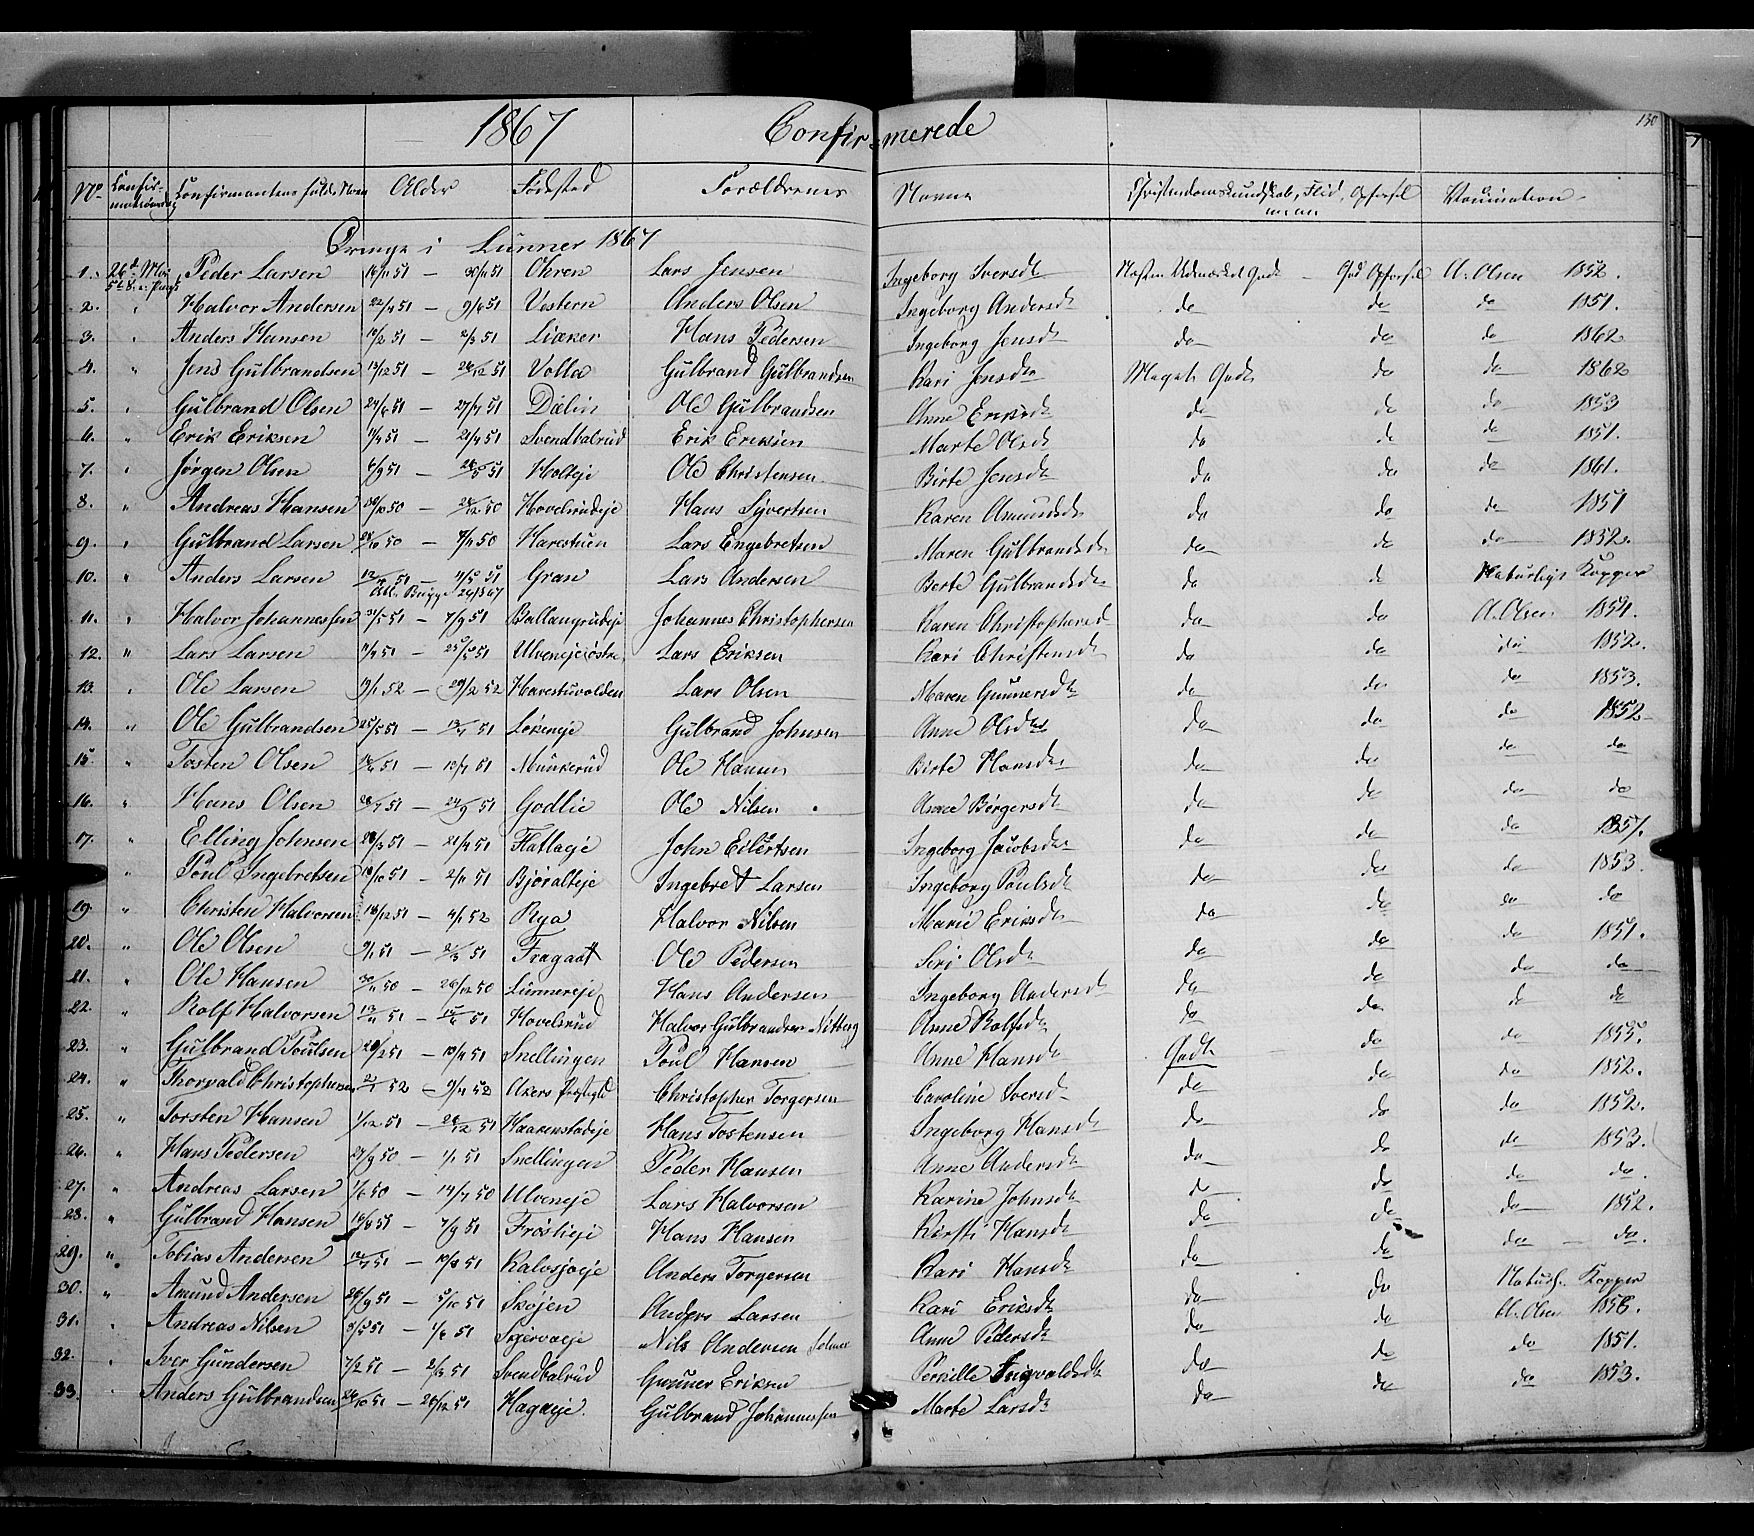 130
1867 Confirmerede
No Confirmationsdag Confirmantens fulde Navn Alder Fødested Forældrenes Navne Christendomskundskab, Flid, Opførsel Vaccination
Drenge i Lunner 1867
1. 26d Mai Peder Larsen 16/11 51 — 30/11 51 Ohren Lars Jensen Ingeborg Iversdt Næsten Udmærket Godt God Opførsel A. Olsen 1852.
2. " Halvor Andersen 22/4 51 — 9/6 51 Vestern Anders Olsen Ingeborg Andersdt do do do 1851.
3. " Anders Hansen 10/2 51 — 2/3 51 Liaker Hans Pedersen Ingeborg Jensdt do do do 1862
4. " Jens Gulbrandsen 13/12 51 — 26/12 51 Volla Gulbrand Gulbrandsen Kari Jensdt Meget Godt do do 1862
5. " Gulbrand Olsen 24/6 51 — 27/7 51 Dælin Ole Gulbrandsen Anne Eriksdt do do do 1853
6. " Erik Eriksen 11/4 51 — 21/4 51 Svendbalrud Erik Eriksen Marte Olsdt do do do 1851.
7. " Jørgen Olsen 6/9 51 — Holteje Ole Christensen Birte Jensdt do do do 1861.
8. " Andreas Hansen 50 — 50 Hovelsrudeje Hans Syvertsen Karen Amundsdt do do do 1851
9. " Gulbrand Larsen 28/10 50 — 7/11 50 Harestuen Lars Engebretsen Maren Gulbrandsdt do do do 1852.
10. " Anders Larsen 51 — 11/5 51 Gran Lars Andersen Berte Gulbrandsdt do do Naturlige Kopper
11. " Halvor Johannessen 31/5 51 — 7/9 51 Ballangrudeje Johannes Christophersen Karen Christophersd do do A. Olsen 1854.
12. " Lars Larsen 11/4 51 — 25/5 51 Ulveneje østre Lars Eriksen Kari Christensdt do do do 1852.
13. " Ole Larsen 9/1 52 — 29/2 52 Harestuvolden Lars Olsen Maren Gunnersdt do do do 1853.
14. " Ole Gulbrandsen 25/5 51 — 51 Løkeneje Gulbrand Johnsen Anne Olsdt do do do 1852
15. " Tosten Olsen 51 — 51 Munkerud Ole Hansen Birte Hansdt do do do do
16. " Hans Olsen 28/7 51 — 24/9 51 Godlie Ole Nilsen Anne Børgersdt do do do do
17. " Elling Johnsen 28/3 51 — 21/4 51 Flatlaeje John Eilertsen Ingeborg Jacobsdt do do do 1857.
" Poul Ingebretsen 18/10 51 — 2/11 51 Bjøralteje Ingebret Larsen Ingeborg Poulsdt do do do 1853.
19. " Christen Halvorsen 18/12 51 — 4/1 52 Rya Halvor Nilsen Marie Eriksdt do do do do
20. " Ole Olsen 9/1 51 — 2/3 51 Fragaat Ole Pedersen Siri Olsdt do do do 1851.
21. " Ole Hansen 30/11 50 — 26/12 50 Lunnereje Hans Andersen Ingeborg Andersdt do do do do
22. " Rolf Halvorsen 51 — 51 Hovelsrud Halvor Gulbrandsen Nitberg Anne Rolfsdt do do do do
23. " Gulbrand Poulsen 20/2 51 — 13/4 51 Snellingen Poul Hansen Anne Hansdt Godt do do 1855.
24. " Thorvald Christophersen 52 — 9/4 52 Akers Præstegjd Christopher Torgersen Caroline Iversdt do do do 1852.
25. " Torsten Hansen 1/12 51 — 26/12 51 Haarenstadeje Hans Tostensen Ingeborg Hansdt do do do 1852.
26. " Hans Pedersen 27/9 50 — 1/1 51 Snellingen Peder Hansen Anne Andersdt do do do 1853.
27. " Andreas Larsen 1/6 50 — 14/7 50 Ulveneje Lars Halvorsen Karine Johnsdt do do do do.
28. " Gulbrand Hansen 51 — 7/9 51 Frøslieje Hans Hansen Kirsti Hansdt do do do 1852.
29. " Tobias Andersen 51 — 10/8 51 Kalvsjøeje Anders Torgersen Kari Hansdt do do do do.
30. " Amund Andersen 26/9 51 — 5/10 51 Skøjen Anders Larsen Kari Eriksdt do do Naturl. Kopper
31. " Andreas Nilsen 51 — 1/6 51 Skjervaeje Nils Andersen Anne Pedersdt do do A. Olsen 1856.
32. " Iver Gundersen 7/2 51 — 2/3 51 Svendbalrud Gunner Eriksen Pernille Ingvaldsdt do do do 1851.
33. " Anders Gulbrandsen 51 — 26/12 51 Hagaeje. Gulbrand Johannessen Marte Larsdt do do do 1853.